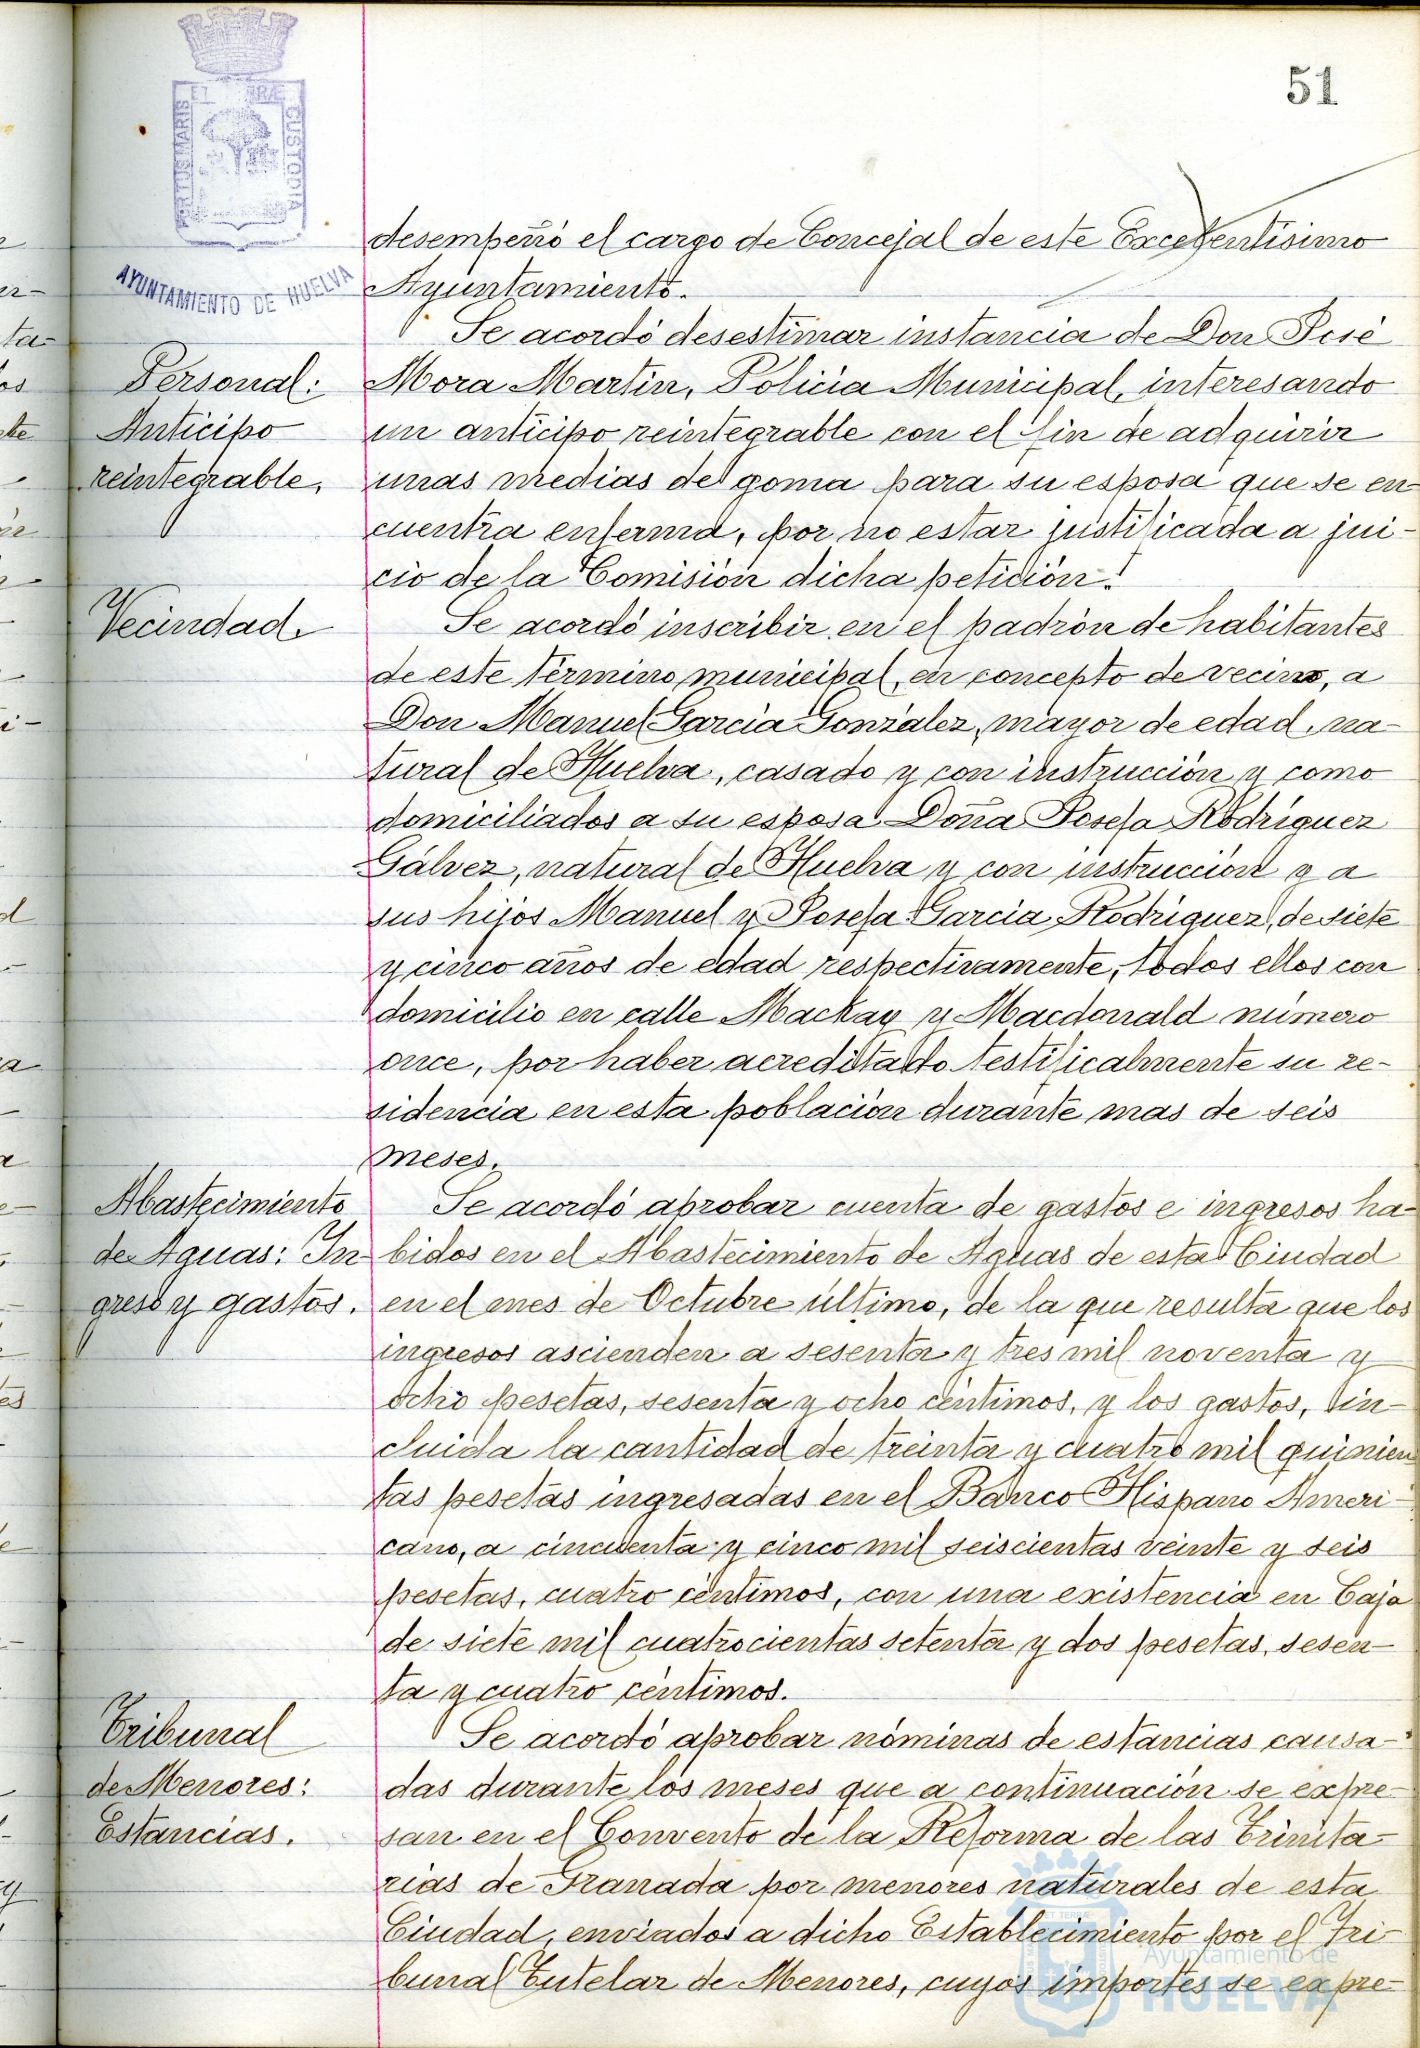 51
PORTUS MARIS ET TERRÆ CUSTODIA
AYUNTAMIENTO DE HUELVA
desempeñó el cargo de Concejal de este Excelentísimo
Ayuntamiento.
Personal:
Anticipo
reintegrable.
Se acordó desestimar instancia de Don José
Mora Martín, Policía Municipal, interesando
un anticipo reintegrable con el fin de adquirir
unas medias de goma para su esposa que se en-
cuentra enferma, por no estar justificada a jui-
cio de la Comisión dicha petición.
Vecindad.
Se acordó inscribir en el padrón de habitantes
de este término municipal, en concepto de vecino, a
Don Manuel García González, mayor de edad, na-
tural de Huelva, casado y con instrucción y como
domiciliados a su esposa Doña Josefa Rodríguez
Gálvez, natural de Huelva y con instrucción y a
sus hijos Manuel y Josefa García Rodríguez, de siete
y cinco años de edad respectivamente, todos ellos con
domicilio en calle Mackay y Macdonald número
once, por haber acreditado testificalmente su re-
sidencia en esta población durante mas de seis
meses.
Abastecimiento
de Aguas: In-
greso y gastos.
Se acordó aprobar cuenta de gastos e ingresos ha-
bidos en el Abastecimiento de Aguas de esta Ciudad
en el mes de Octubre último, de la que resulta que los
ingresos ascienden a sesenta y tres mil noventa y
ocho pesetas, sesenta y ocho céntimos, y los gastos, in-
cluida la cantidad de treinta y cuatro mil quinien
tas pesetas ingresadas en el Banco Hispano Ameri-
cano, a cincuenta y cinco mil seiscientas veinte y seis
pesetas, cuatro céntimos, con una existencia en Caja
de siete mil cuatrocientas setenta y dos pesetas, sesen-
ta y cuatro céntimos.
Tribunal
de Menores:
Estancias.
Se acordó aprobar nóminas de estancias causa-
das durante los meses que a continuación se expre-
san en el Convento de la Reforma de las Trinita-
rias de Granada por menores naturales de esta
Ciudad, enviados a dicho Establecimiento por el Tri-
bunal Tutelar de Menores, cuyos importes se expre-
Ayuntamiento de
HUELVA